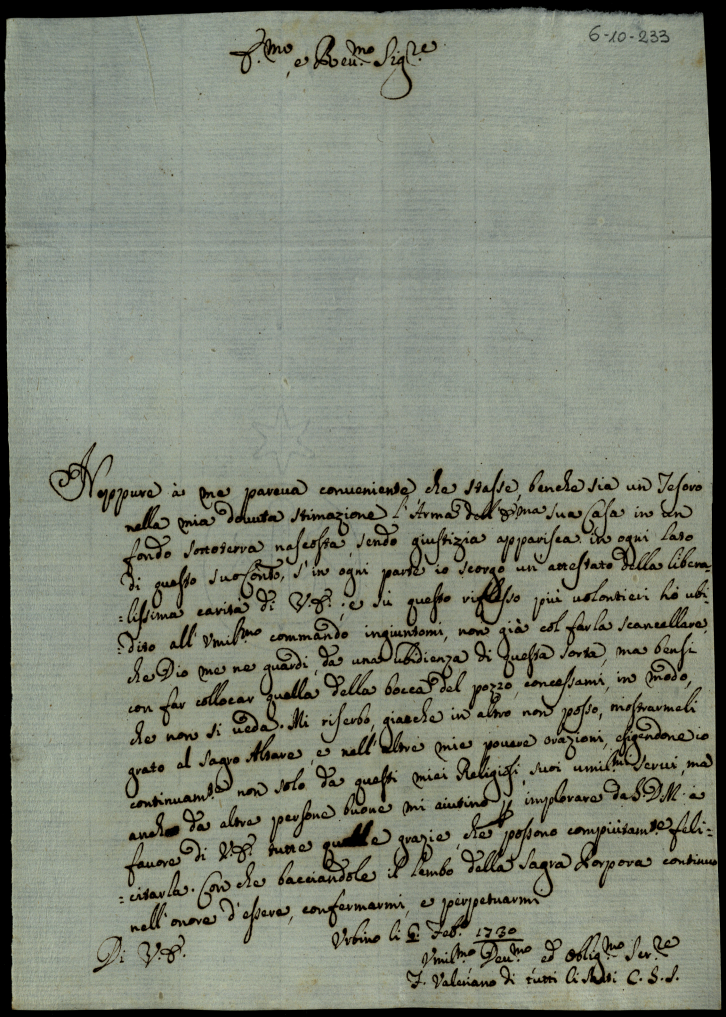 6-10-233
E.mo e Reu.mo Sig.re
Neppure à me pareua conueniente, che stasse, benche sia un Tesoro
nella mia douuta stimazione l'Arma dell' E.ma sua Casa in un
fondo sottoterra nascosta, sendo giustizia apparisca in ogni lato
di questo suo Conto, s'in ogni parte io scorgo un attestato della libera-
-lissima carità di V.E.; e sù questo riflesso più volontieri hò ubi-
-dito all' Vmil.mo commando ingiuntomi, non già col farla scancellare,
che Dio me ne guardi, da una ubidienza di questa sorta, ma bensì
con far collocar quella della bocca del pozzo, concessami, in modo,
che non si ueda. Mi riserbo, giacche in altro non posso, mostrarmeli
grato al Sagro Altare, e nell'altre mie pouere orazioni, esigendone io
continuam.te non solo da questi miei Religiosi, suoi umil.mi Serui, ma
anche da altre persone buone mi aiutino p implorare da S.D.M. à
fauore di V.E. tutte quelle grazie, che possono compiutamte feli-
-citarla. Con che bacciandole il lembo della Sagra Porpora continuo
nell'onore d'essere, confermarmi, e perpetuarmi
Di V.E.
Vrbino li 6 Feb.o 1730
Vmil.mo Deu.mo ed oblig.mo Ser.re
F. Valeriano di tutti li Santi C. S.